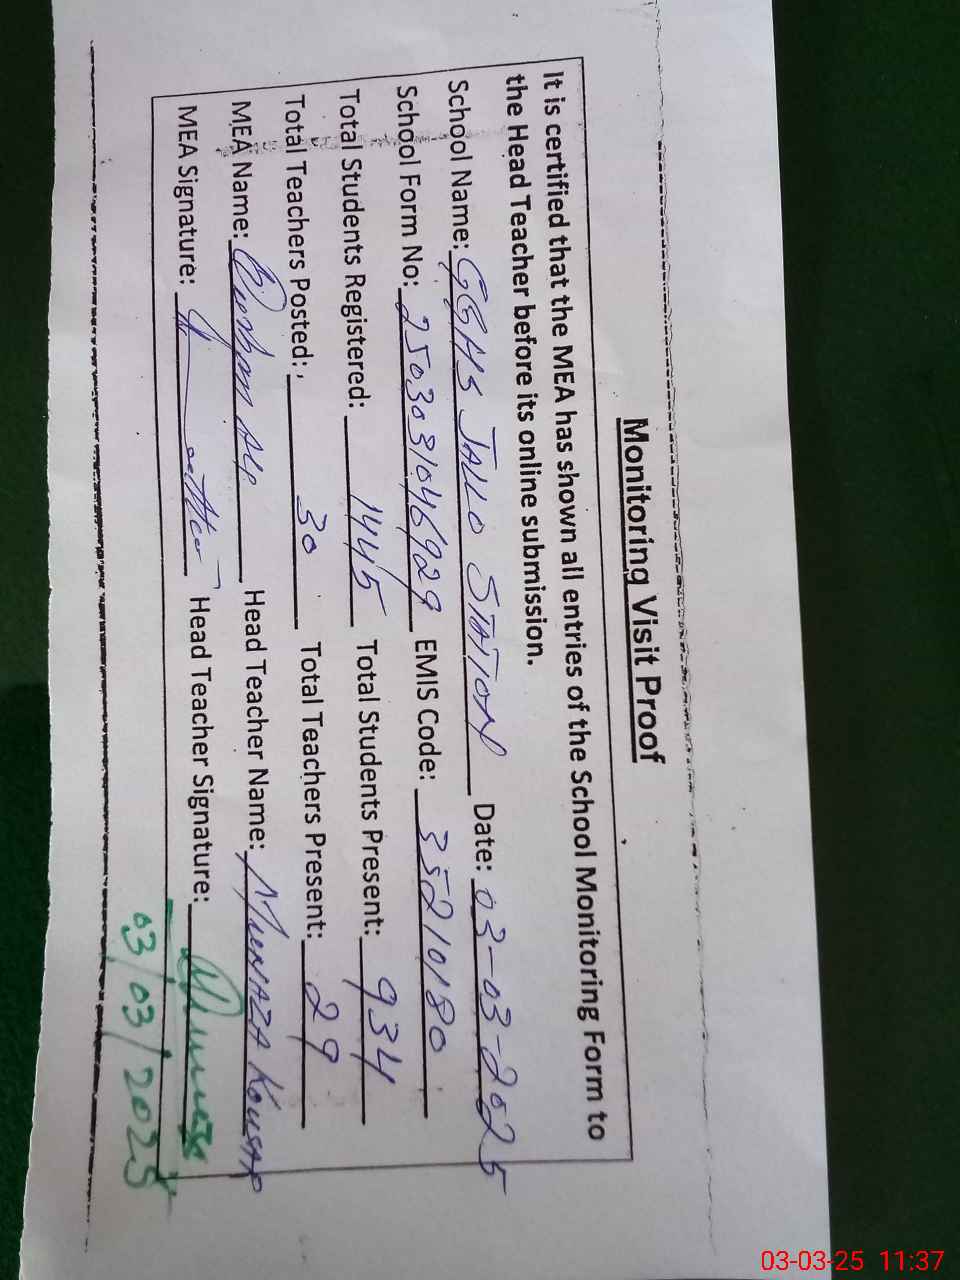 Monitoring Visit Proof
It is certified that the MEA has shown all entries of the School Monitoring Form to
the Head Teacher before its online submission.
School Name: GGHS JALLO STATION Date: 03-03-2025
School Form No: 2503031046929 EMIS Code: 35210180
Total Students Registered: 1445 Total Students Present: 934
Total Teachers Posted: 30 Total Teachers Present: 29
MEA Name: Ali Head Teacher Name: MUNAZA KOUSAR
MEA Signature: Head Teacher Signature:
03/03/2025
03-03-25 11:37